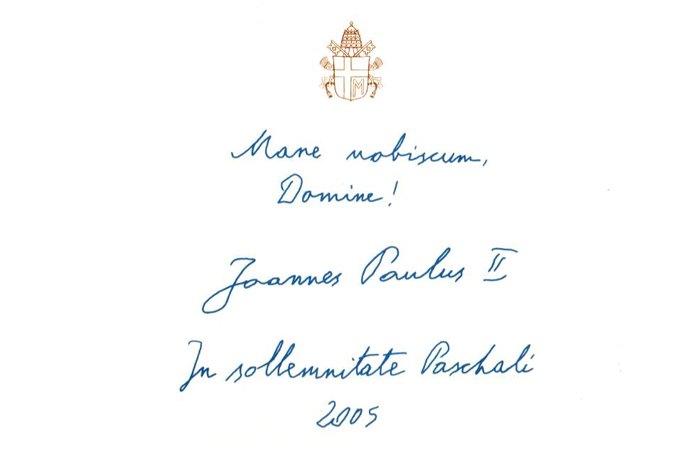 Mane nobiscum,
Domine!
Joannes Paulus II
In sollemnitate Paschali
2005